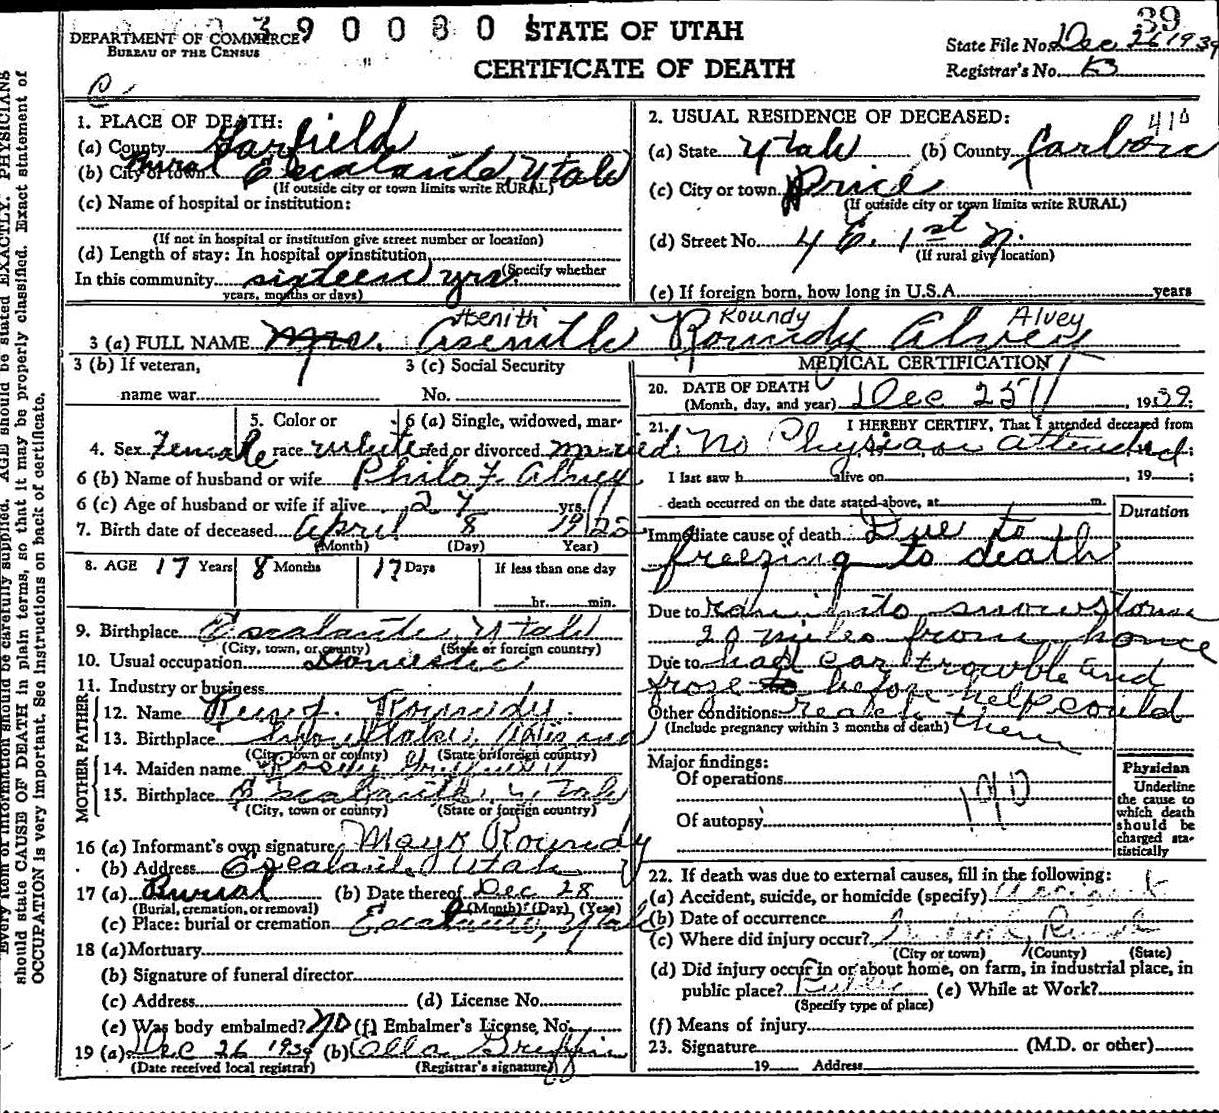 390080
39
DEPARTMENT OF COMMERCE
BUREAU OF THE CENSUS
STATE OF UTAH
CERTIFICATE OF DEATH
State File No. Dec 26 1939
Registrar's No.
1. PLACE OF DEATH:
(a) County Garfield
(b) City or town Rural Escalante, Utah
(If outside city or town limits write RURAL)
(c) Name of hospital or institution:
(If not in hospital or institution give street number or location)
(d) Length of stay: In hospital or institution
(Specify whether
In this community sixteen yrs.
years, months or days)
2. USUAL RESIDENCE OF DECEASED:
(a) State Utah (b) County Carbon
(c) City or town Price
(If outside city or town limits write RURAL)
(d) Street No. 4 E. 1st N.
(If rural give location)
(e) If foreign born, how long in U.S.A. years
Roundy Alvey
3 (a) FULL NAME Mrs. Asenith Roundy Alvey
3 (b) If veteran,
name war
3 (c) Social Security
No.
4. Sex Female
5. Color or
race white
6 (a) Single, widowed, mar-
ried or divorced married.
6 (b) Name of husband or wife Philo F. Alvey
6 (c) Age of husband or wife if alive 27 yrs.
7. Birth date of deceased April 8 1922
(Month) (Day) Year)
8. AGE 17 Years 8 Months 17 Days
If less than one day
hr. min.
9. Birthplace Escalante, Utah
(City, town, or county) (State or foreign country)
10. Usual occupation Domestic
11. Industry or business
MOTHER FATHER
12. Name Roundy
13. Birthplace
(City, town or county) (State or foreign country)
14. Maiden name
15. Birthplace Escalante, Utah
(City, town or county) (State or foreign country)
16 (a) Informant's own signature Roundy
(b) Address Escalante, Utah
17 (a) Burial (b) Date thereof Dec 28
(Burial, cremation, or removal) (Month) (Day) (Year)
(c) Place: burial or cremation Escalante, Utah
18 (a) Mortuary
(b) Signature of funeral director
(c) Address (d) License No.
(e) Was body embalmed? No (f) Embalmer's License, No.
19 (a) Dec 26 1939 (b) Griffin
(Date received local registrar) (Registrar's signature)
MEDICAL CERTIFICATION
20. DATE OF DEATH
(Month, day, and year) Dec 25, 1939.
21. I HEREBY CERTIFY, That I attended deceased from
No Physician attended;
I last saw h alive on , 19 ;
death occurred on the date stated above, at m.
Duration
Immediate cause of death Due to
freezing to death
Due to ran into snowstorm
20 miles from home
Due to had car trouble and
froze to before help could
Other conditions: reach them
(Include pregnancy within 3 months of death)
Major findings:
Of operations
Of autopsy
Physician
Underline
the cause to
which death
should be
charged sta-
tistically
22. If death was due to external causes, fill in the following:
(a) Accident, suicide, or homicide (specify) Accident
(b) Date of occurrence
(c) Where did injury occur?
(City or town) (County) (State)
(d) Did injury occur in or about home, on farm, in industrial place, in
public place? Public (e) While at Work?
(Specify type of place)
(f) Means of injury
23. Signature (M.D. or other)
19 Address
Every item of information should be carefully supplied. AGE should be stated EXACTLY. PHYSICIANS
should state CAUSE OF DEATH in plain terms, so that it may be properly classified. Exact statement of
OCCUPATION is very important. See instructions on back of certificate.